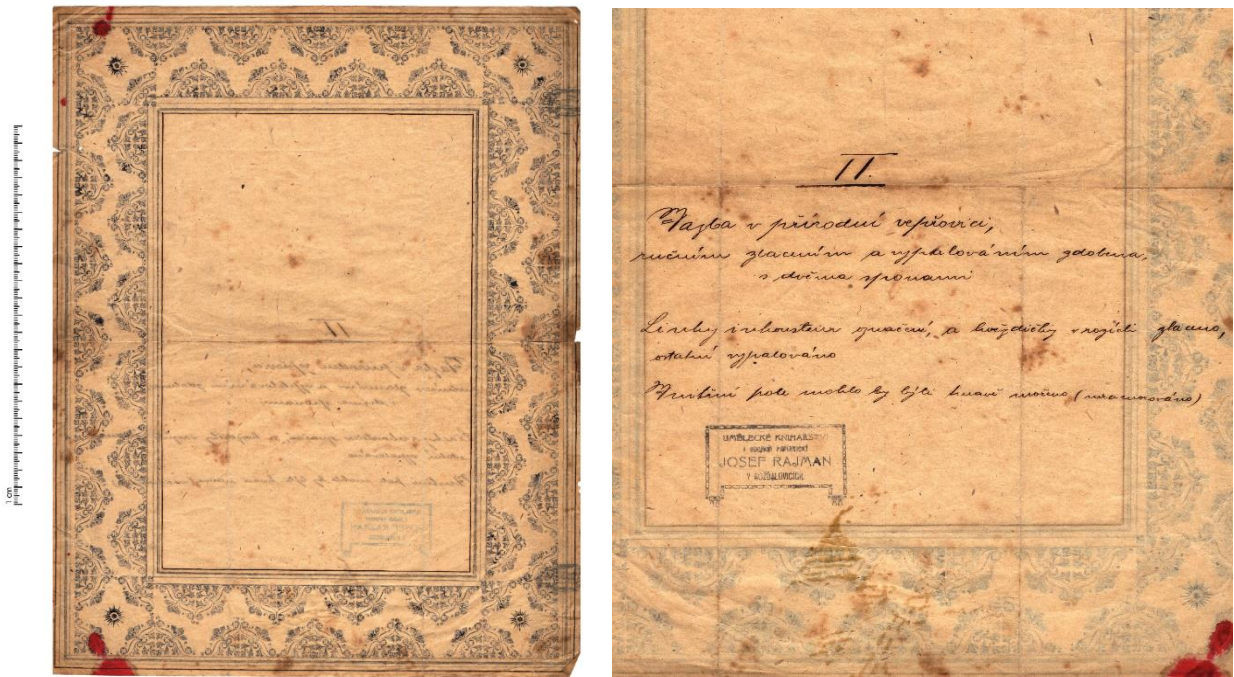 II.
Vazba v přírodní vepřovici,
ručním zlacením a vypalováním zdobena,
s dvěma sponami
Linky inkoustem značené, a hvězdičky v rozích zlaceno,
ostatní vypalováno
Vnitřní pole mohlo by býti hnavě mořeno
UMĚLECKÉ KNIHAŘSTVÍ
JOSEF RAJMAN
V ROŽĎALOVICÍCH